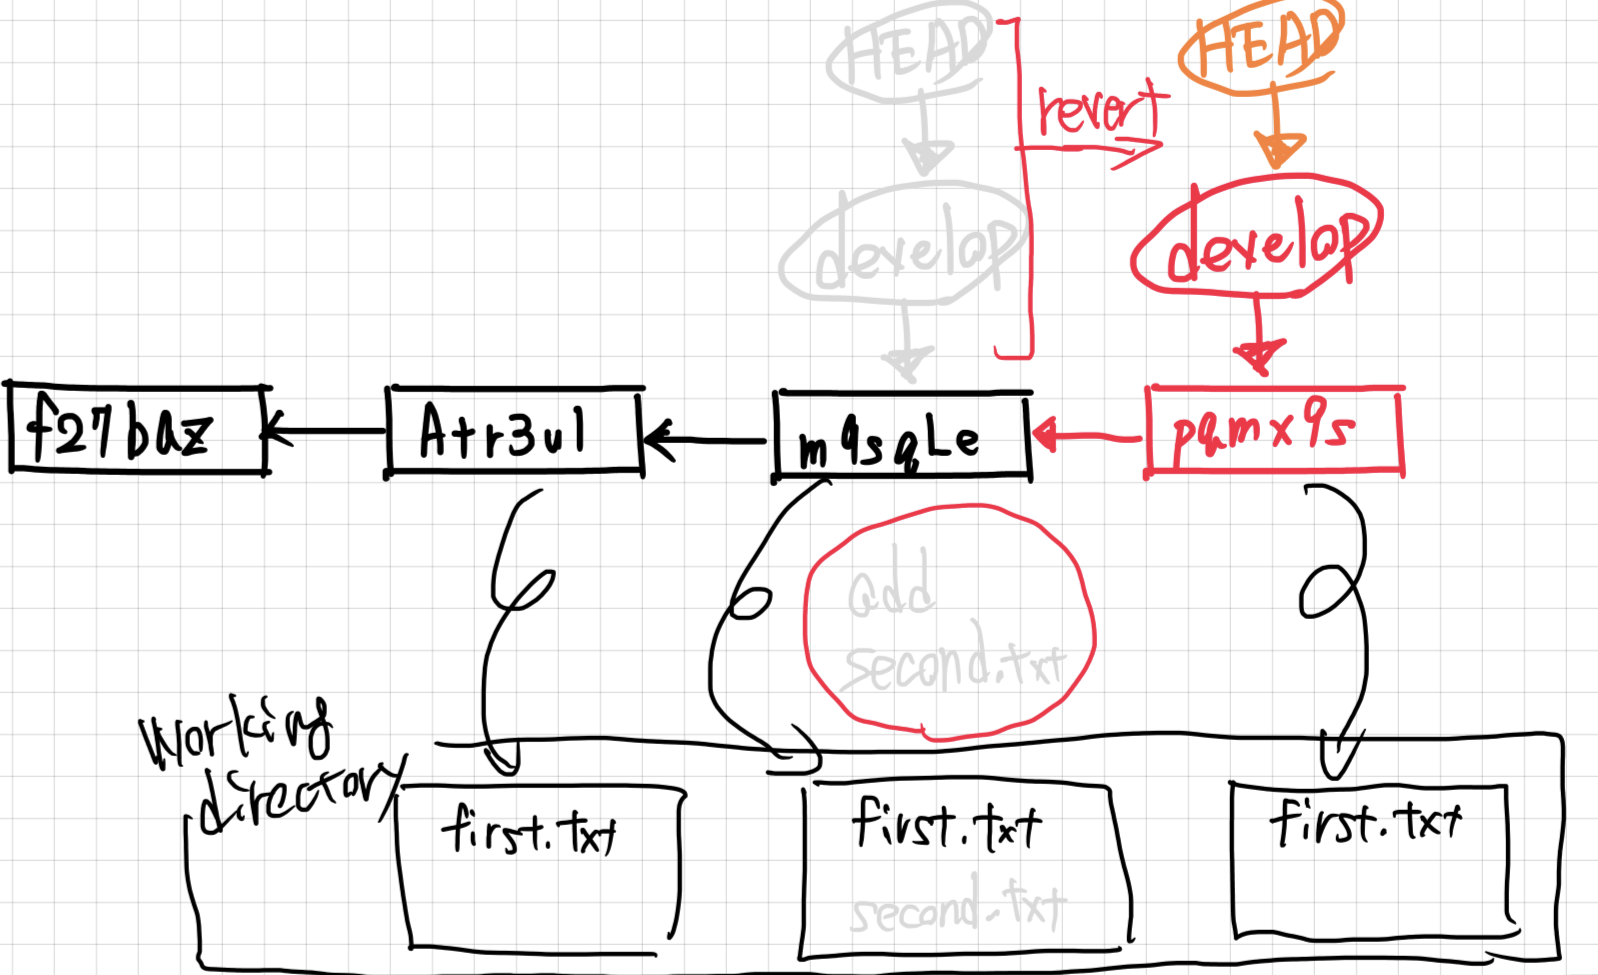 HEAD
HEAD
revert
develop
develop
f27baz
A+r3ul
m9sqLe
pqmx9s
add
second.txt
working
directory
first.txt
first.txt
second.txt
first.txt